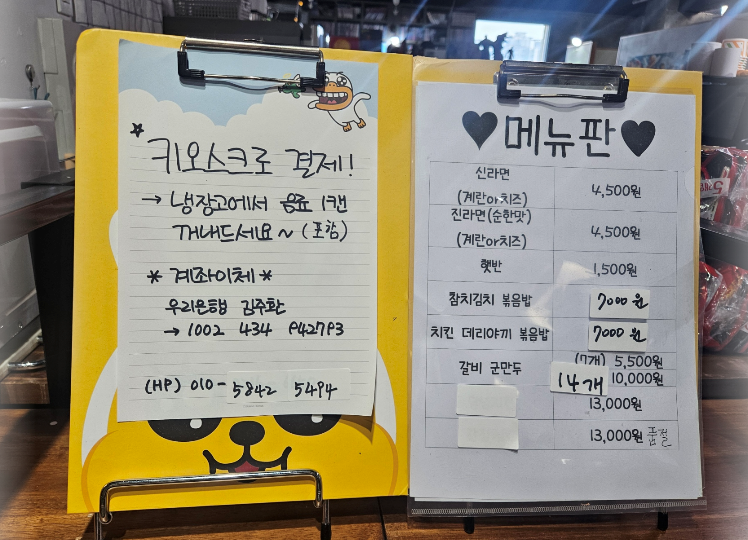 * 키오스크로 결제!
→ 냉장고에서 음료 1캔
꺼내드세요~ (포함)
* 계좌이체 *
우리은행 김주환
→ 1002 434 942793
(HP) 010- 5842 5494
♥메뉴판♥
신라면
(계란or치즈) 4,500원
진라면(순한맛)
(계란or치즈) 4,500원
햇반 1,500원
참치김치 볶음밥 7000 원
치킨 데리야끼 볶음밥 7000 원
갈비 군만두 (7개) 5,500원
14개 10,000원
13,000원
13,000원 품절